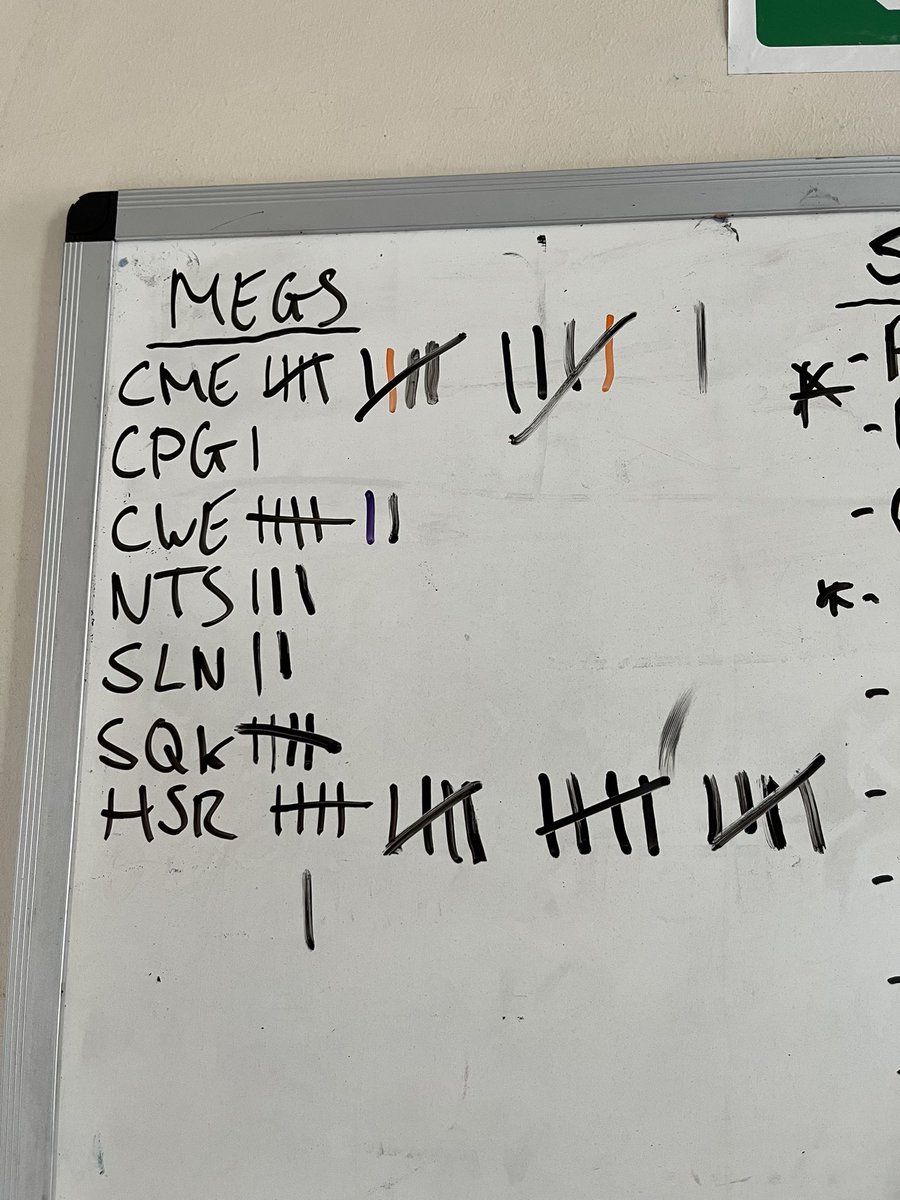 MEGS
CME
CPG
CWE
NTS
SLN
SQK
HSR